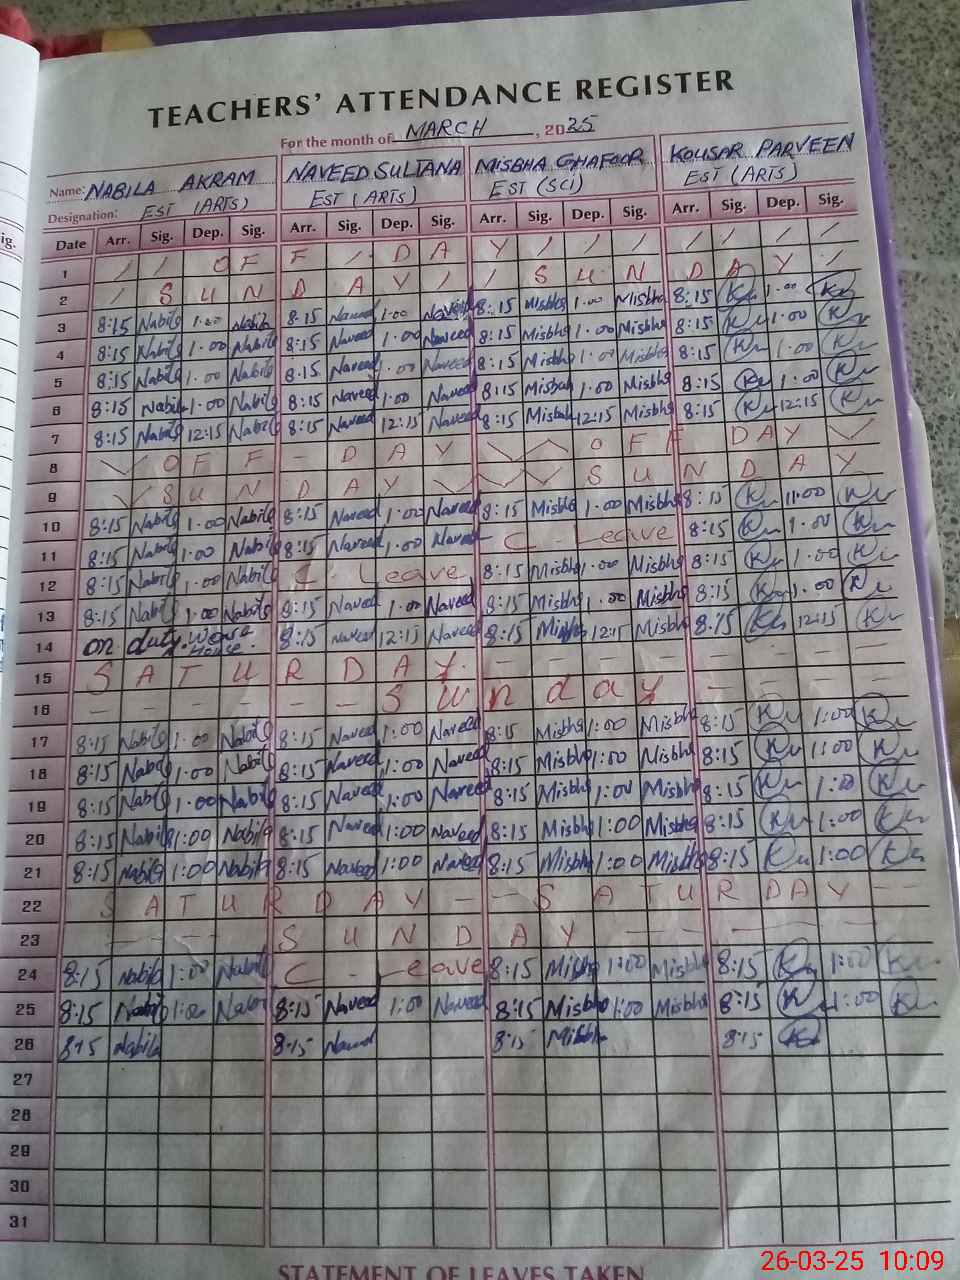 TEACHERS' ATTENDANCE REGISTER
For the month of MARCH, 2025
Name: NABILA AKRAM NAVEED SULTANA MISBHA GHAFOOR KOUSAR PARVEEN
Designation: EST (ARTS) EST (ARTS) EST (SCI) EST (ARTS)
ig.
Date Arr. Sig. Dep. Sig. Arr. Sig. Dep. Sig. Arr. Sig. Dep. Sig. Arr. Sig. Dep. Sig.
1 / / OF F / DA Y / / / / / / /
2 / SUN DAY / / SUN DAY /
3 8:15 Nabila 1:00 Nabila 8:15 Naveed 1:00 Naveed 8:15 Misbha 1:00 Misbha 8:15 1:00
4 8:15 Nabila 1:00 Nabila 8:15 Naveed 1:00 Naveed 8:15 Misbha 1:00 Misbha 8:15 1:00
5 8:15 Nabila 1:00 Nabila 8:15 Naveed 1:00 Naveed 8:15 Misbha 1:00 Misbha 8:15 1:00
6 8:15 Nabila 1:00 Nabila 8:15 Naveed 1:00 Naveed 8:15 Misbah 1:00 Misbha 8:15 1:00
7 8:15 Nabila 12:15 Nabila 8:15 Naveed 12:15 Naveed 8:15 Misbah 12:15 Misbha 8:15 12:15
8 OFF - DAY OFF DAY
9 SUN DAY SUN DAY
10 8:15 Nabila 1:00 Nabila 8:15 Naveed 1:00 Naveed 8:15 Misbha 1:00 Misbha 8:15 11:00
11 8:15 Nabila 1:00 Nabila 8:15 Naveed 1:00 Naveed C - Leave 8:15 1:00
12 8:15 Nabila 1:00 Nabila C - Leave 8:15 Misbha 1:00 Misbha 8:15 1:00
13 8:15 Nabila 1:00 Nabila 8:15 Naveed 1:00 Naveed 8:15 Misbha 1:00 Misbha 8:15 1:00
14 on duty 8:15 Naveed 12:15 Naveed 8:15 Misbha 12:15 Misbha 8:15 12:15
15 SATURDAY - - - - - - - -
16 - - - - - - Sunday - - - -
17 8:15 Nabila 1:00 Nabila 8:15 Naveed 1:00 Naveed 8:15 Misbha 1:00 Misbha 8:15 1:00
18 8:15 Nabila 1:00 Nabila 8:15 Naveed 1:00 Naveed 8:15 Misbha 1:00 Misbha 8:15 1:00
19 8:15 Nabila 1:00 Nabila 8:15 Naveed 1:00 Naveed 8:15 Misbha 1:00 Misbha 8:15 1:00
20 8:15 Nabila 1:00 Nabila 8:15 Naveed 1:00 Naveed 8:15 Misbha 1:00 Misbha 8:15 1:00
21 8:15 Nabila 1:00 Nabila 8:15 Naveed 1:00 Naveed 8:15 Misbha 1:00 Misbha 8:15 1:00
22 SATURDAY - - SATURDAY - -
23 - - - SUNDAY - - - - -
24 8:15 Nabila 1:00 Nabila C - Leave 8:15 Misbha 1:00 Misbha 8:15 1:00
25 8:15 Nabila 1:00 Nabila 8:15 Naveed 1:00 Naveed 8:15 Misbha 1:00 Misbha 8:15 1:00
26 8:15 Nabila 8:15 Naveed 8:15 Misbha 8:15
27
28
29
30
31
STATEMENT OF LEAVES TAKEN
26-03-25 10:09